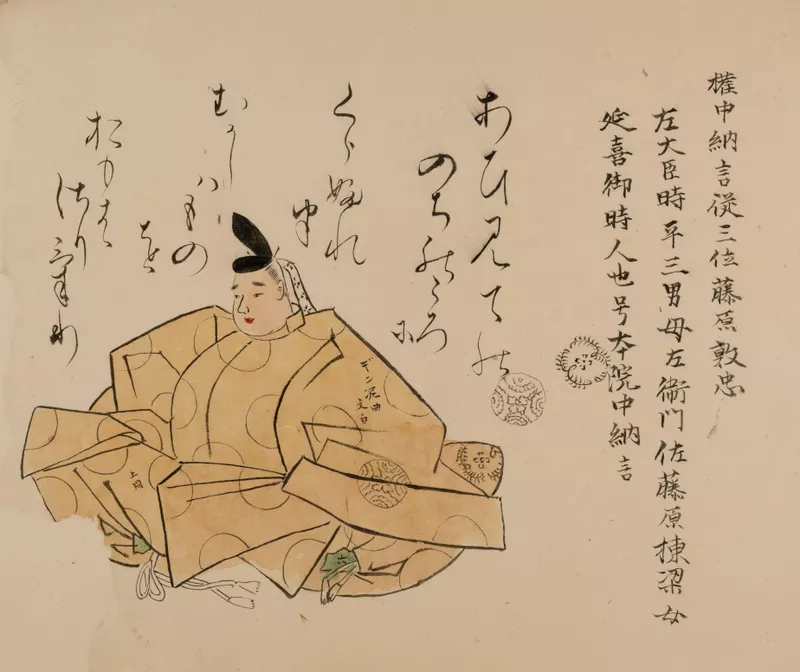 權中納言從三位藤原敦忠
左大臣時平三男母左衛門佐藤原棟梁女
延喜御時人也号本院中納言
あひ見ての
のちのこゝろ
に
くらふれ
は
むかしはもの
を
おもは
さりけり
ギン泥
文白
上同